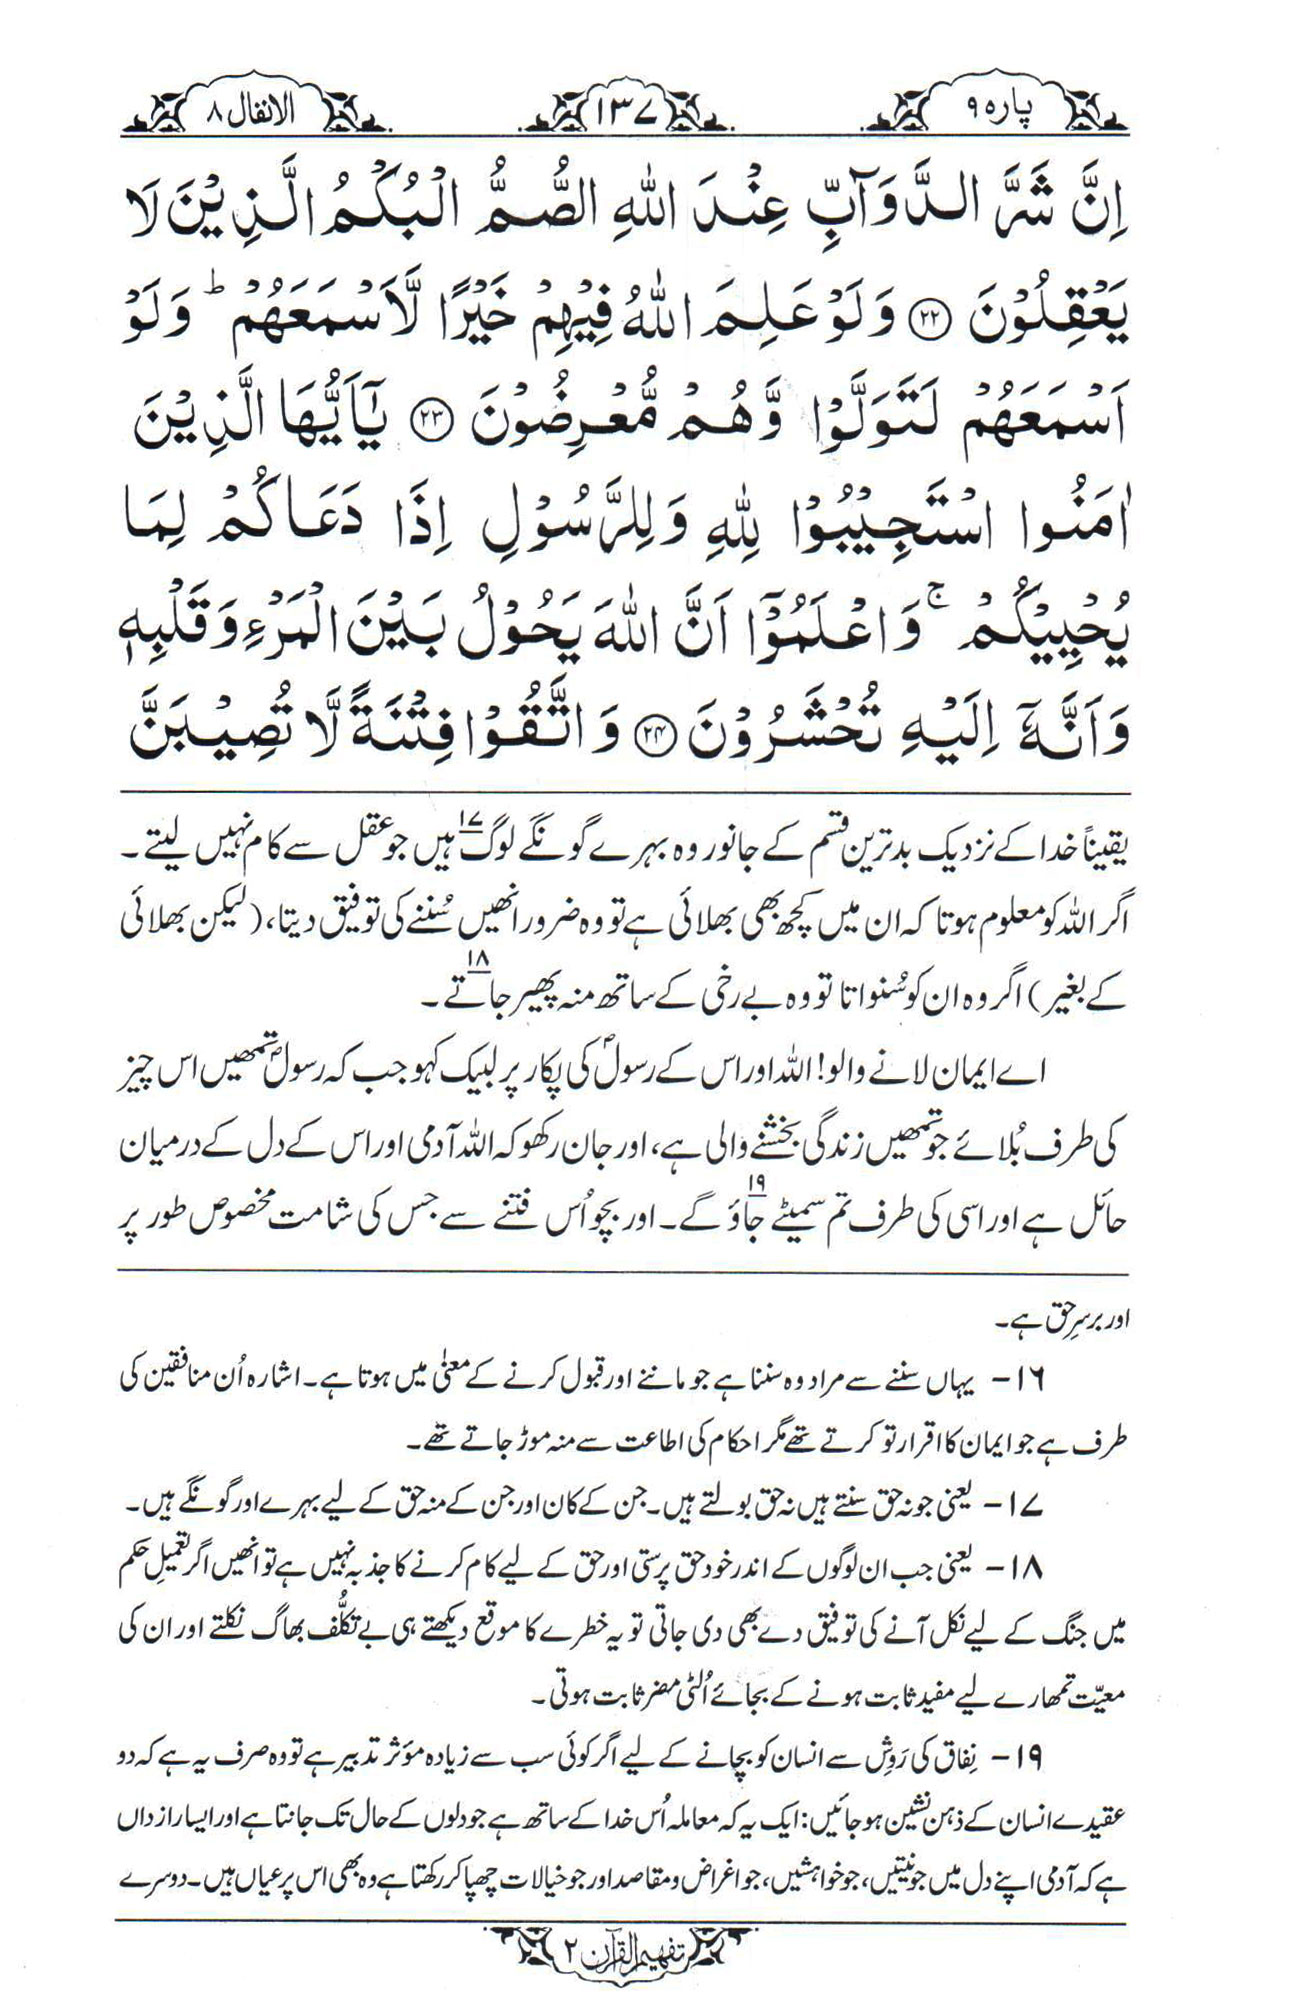 پارہ ۹
۱۳۷
الانفال ۸
اِنَّ شَرَّ الدَّوَآبِّ عِنْدَ اللّٰهِ الصُّمُّ الْبُكْمُ الَّذِيْنَ لَا
يَعْقِلُوْنَ ۲۲ وَلَوْ عَلِمَ اللّٰهُ فِيْهِمْ خَيْرًا لَّاَسْمَعَهُمْ ؕ وَلَوْ
اَسْمَعَهُمْ لَتَوَلَّوْا وَّهُمْ مُّعْرِضُوْنَ ۲۳ يٰۤاَيُّهَا الَّذِيْنَ
اٰمَنُوا اسْتَجِيْبُوْا لِلّٰهِ وَلِلرَّسُوْلِ اِذَا دَعَاكُمْ لِمَا
يُحْيِيْكُمْ ۚ وَاعْلَمُوْۤا اَنَّ اللّٰهَ يَحُوْلُ بَيْنَ الْمَرْءِ وَقَلْبِهٖ
وَاَنَّهٗۤ اِلَيْهِ تُحْشَرُوْنَ ۲۴ وَاتَّقُوْا فِتْنَةً لَّا تُصِيْبَنَّ
یقیناً خدا کے نزدیک بدترین قسم کے جانور وہ بہرے گونگے لوگ ۱۷ ہیں جو عقل سے کام نہیں لیتے۔
اگر اللہ کو معلوم ہوتا کہ ان میں کچھ بھی بھلائی ہے تو وہ ضرور انھیں سُننے کی توفیق دیتا، (لیکن بھلائی
کے بغیر) اگر وہ ان کو سُنواتا تو وہ بے رخی کے ساتھ منہ پھیر جاتے ۱۸۔
اے ایمان لانے والو! اللہ اور اس کے رسولؐ کی پکار پر لبیک کہو جب کہ رسولؐ تمھیں اس چیز
کی طرف بُلائے جو تمھیں زندگی بخشنے والی ہے، اور جان رکھو کہ اللہ آدمی اور اس کے دل کے درمیان
حائل ہے اور اسی کی طرف تم سمیٹے جاؤ گے ۱۹۔ اور بچو اُس فتنے سے جس کی شامت مخصوص طور پر
اور برسرِ حق ہے۔
۱۶- یہاں سننے سے مراد وہ سننا ہے جو ماننے اور قبول کرنے کے معنیٰ میں ہوتا ہے۔ اشارہ اُن منافقین کی
طرف ہے جو ایمان کا اقرار تو کرتے تھے مگر احکام کی اطاعت سے منہ موڑ جاتے تھے۔
۱۷- یعنی جو نہ حق سنتے ہیں نہ حق بولتے ہیں۔ جن کے کان اور جن کے منہ حق کے لیے بہرے اور گونگے ہیں۔
۱۸- یعنی جب ان لوگوں کے اندر خود حق پرستی اور حق کے لیے کام کرنے کا جذبہ نہیں ہے تو انھیں اگر تعمیلِ حکم
میں جنگ کے لیے نکل آنے کی توفیق دے بھی دی جاتی تو یہ خطرے کا موقع دیکھتے ہی بے تکلُّف بھاگ نکلتے اور ان کی
معیّت تمھارے لیے مفید ثابت ہونے کے بجائے اُلٹی مضر ثابت ہوتی۔
۱۹- نِفاق کی رَوِش سے انسان کو بچانے کے لیے اگر کوئی سب سے زیادہ مؤثر تدبیر ہے تو وہ صرف یہ ہے کہ دو
عقیدے انسان کے ذہن نشین ہو جائیں: ایک یہ کہ معاملہ اُس خدا کے ساتھ ہے جو دلوں کے حال تک جانتا ہے اور ایسا راز داں
ہے کہ آدمی اپنے دل میں جو نیتیں، جو خواہشیں، جو اغراض و مقاصد اور جو خیالات چھپا کر رکھتا ہے وہ بھی اس پر عیاں ہیں۔ دوسرے
تفہیم القرآن ۲